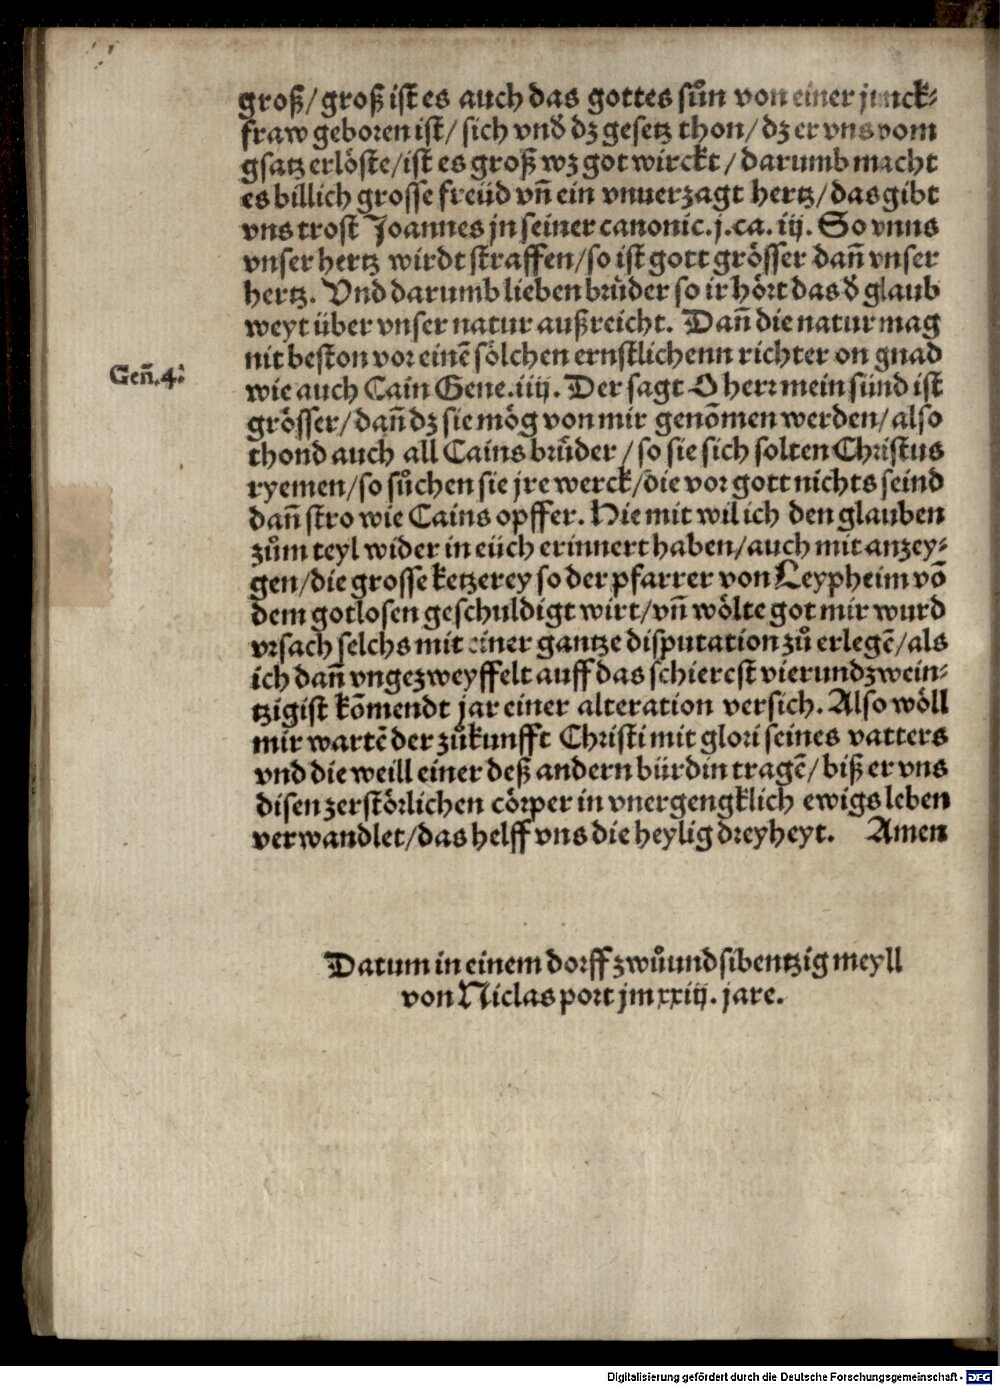 groß/ groß ist es auch das gottes sůn von einer junck⸗
fraw geboren ist/ sich vnd̕ dz gesetz thon/ dz er vns vom
gsatz erlöste/ist es groß wz got wirckt/ darumb macht
es billich grosse freüd vn̄ ein vnuerzagt hertz/ das gibt
vns trost Joannes jn seiner canonic. j. ca. iij. So vnns
vnser hertz wirdt straffen/ so ist gott grösser dañ vnser
hertz. Vnd darumb lieben brüder so ir hört das d̕ glaub
weyt über vnser natur außreicht. Dañ die natur mag
nit beston vor einē sölchen ernstlichenn richter on gnad
Geñ.4.
wie auch Cain Gene. iiij. Der sagt O herr mein sünd ist
grösser/ dañ dz sie mög von mir genōmen werden/ also
thond auch all Cains brüder/ so sie sich solten Christus
ryemen/ so sůchen sie jre werck/ die vor gott nichts seind
dañ stro wie Cains opffer. Hie mit wil ich den glauben
zům teyl wider in eüch erinnert haben/ auch mit anzey⸗
gen/ die grosse ketzerey so der pfarrer von Leypheim vō
dem gotlosen geschuldigt wirt/ vn̄ wölte got mir wurd
vrsach selchs mit einer gantze disputation zů erlegē/ als
ich dañ vngezweyffelt auff das schierest vierundzwein⸗
tzigist kōmendt jar einer alteration versich. Also wöll
mir wartē der zůkunfft Christi mit glori seines vatters
vnd die weill einer deß andern bürdin tragē/ biß er vns
disen zerstörlichen cörper in vnergengklich ewigs leben
verwandlet/ das helff vns die heylig dreyheyt. Amen
Datum in einem dorff zwůundsibentzig meyll
von Niclas port jm xxiij. jare.
Digitalisierung gefördert durch die Deutsche Forschungsgemeinschaft - DFG